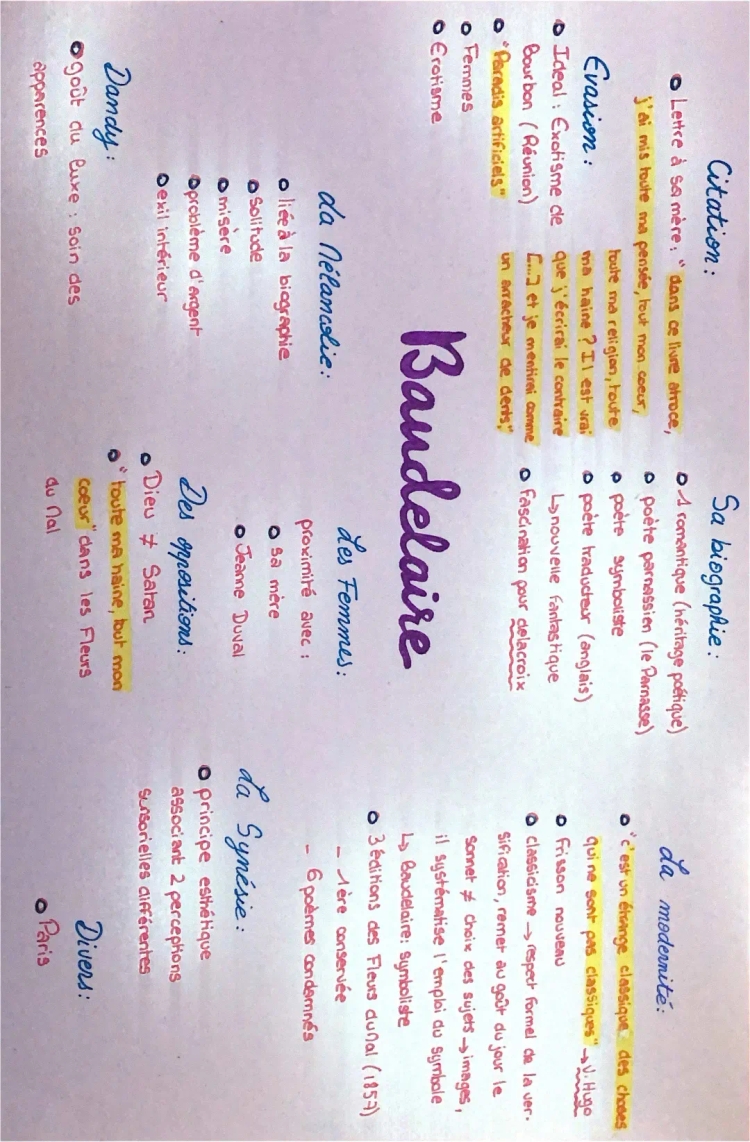 Citation :
Lettre à sa mère : " dans ce livre atroce,
j'ai mis toute ma pensée, tout mon coeur,
toute ma religion, toute
ma haine ? Il est vrai
que j'écrirai le contraire
[...] et je mentirai comme
un arracheur de dents"
Evasion :
Ideal : Exotisme de
Bourbon (Réunion)
"Paradis artificiels"
Femmes
Erotisme
Sa biographie :
1 romantique (héritage poétique)
poète parnassien (le Parnasse)
poète symboliste
poète traducteur (anglais)
↳ nouvelle fantastique
Fascination pour delacroix
La modernité :
"c'est un étrange classique des choses
qui ne sont pas classiques" → V. Hugo
frisson nouveau
classicisme → respect formel de la ver-
sification, remet au goût du jour le
sonnet ≠ choix des sujets → images,
il systématise l'emploi du symbole
↳ Baudelaire : symboliste
3 éditions des Fleurs du Mal (1857)
- 1ère conservée
- 6 poèmes condamnés
Baudelaire
La Mélancolie :
liée à la biographie
solitude
misère
problème d'argent
exil intérieur
Dandy :
goût du luxe : soin des
apparences
Les Femmes :
proximité avec :
sa mère
Jeanne Duval
Des oppositions :
Dieu ≠ Satan
"toute ma haine, tout mon
coeur" dans les Fleurs
du Mal
La Synésie :
principe esthétique
associant 2 perceptions
sensorielles différentes
Divers :
Paris